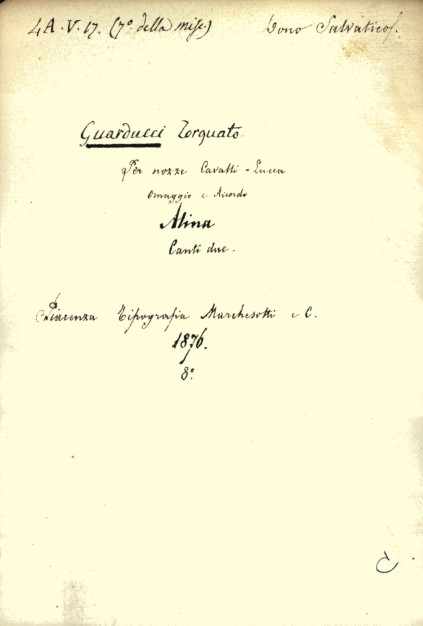 4A.V.17. (7° della misc.) Dono Salvatico
Guarducci Torquato.
Per nozze Cavalli - Lucca
Omaggio e Ricordo
Alina
Canti due.
Piacenza Tipografia Marchesotti e C.
1876.
8°